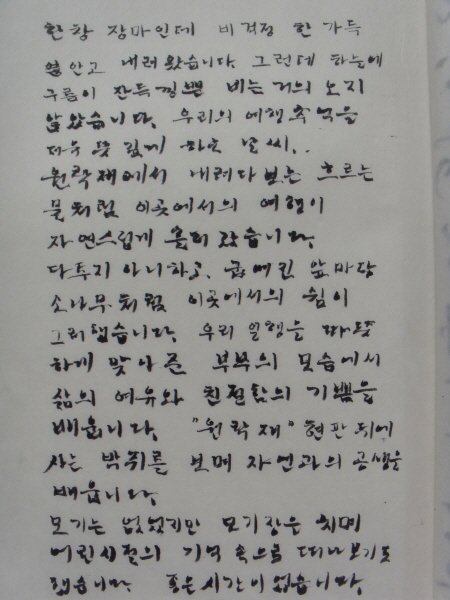 한창 장마인데 비걱정 한 가득
안고 내려왔습니다. 그런데 하늘에
구름이 잔득낄뿐 비는 거의 오지
않았습니다. 우리의 여행 추억을
더욱 뜻 깊게 하는 날씨..
원락재에서 내려다 보는 흐르는
물처럼 이곳에서의 여행이
자연스럽게 흘러 갔습니다.
다투지 아니하고, 굽어진 앞마당
소나무처럼 이곳에서의 쉼이
그러했습니다. 우리 일행을 따뜻
하게 맞아준 부부의 모습에서
삶의 여유와 친절함의 기쁨을
배웁니다. "원락재" 현판 뒤에
사는 박쥐를 보며 자연과의 공생을
배웁니다.
모기는 없었지만 모기장은 치며
어린시절의 기억 속으로 떠나보기도
했습니다. 좋은시간이었습니다.